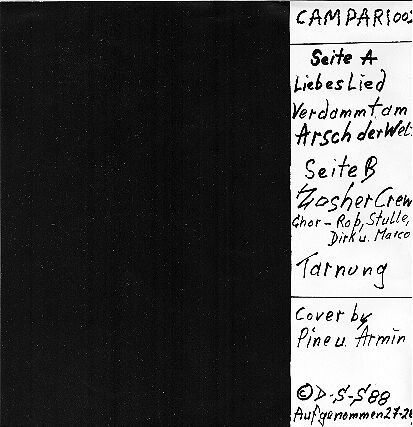 CAMPARI002
Seite A
Liebes Lied
Verdammt am
Arsch der Welt
Seite B
Zosher Crew
Chor - Rob, Stulle,
Dirk u. Marco
Tarnung
Cover by
Pine u. Armin
© D-S-S 88
Aufgenommen 27-28